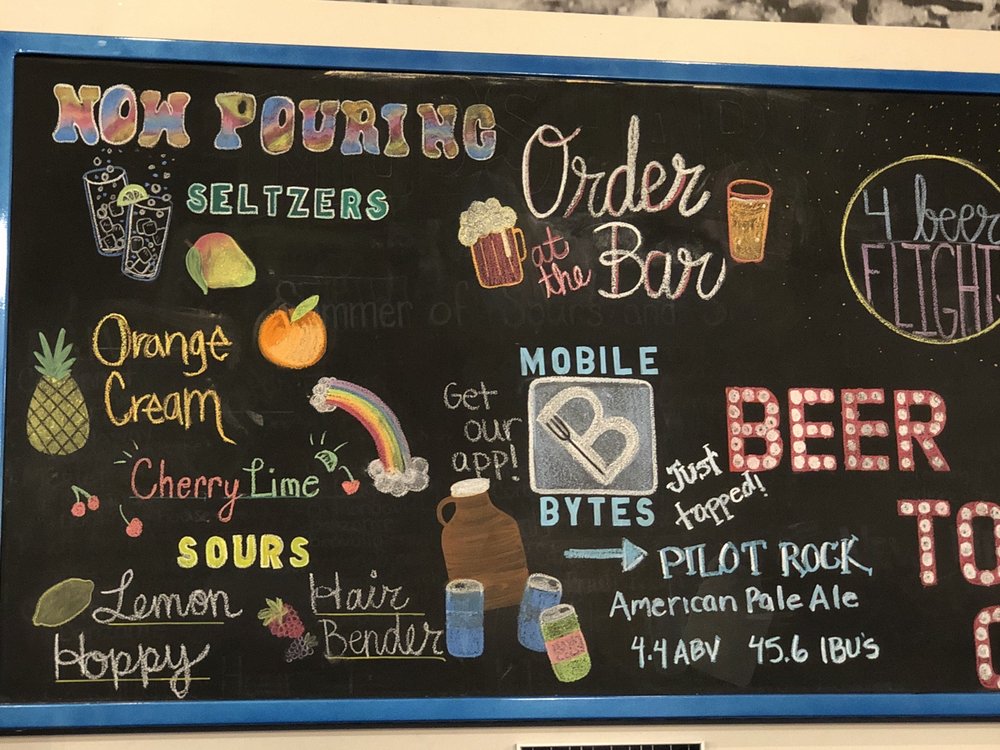 NOW POURING
SELTZERS
Orange
Cream
Cherry Lime
SOURS
Lemon
Hoppy
Hair
Bender
Order
at
the
Bar
Get
our
app!
MOBILE
B
BYTES
Just
tapped!
PILOT ROCK
American Pale Ale
4.4 ABV 45.6 IBU's
4 beer
FLIGHT
BEER
TO
Summer of Sours and